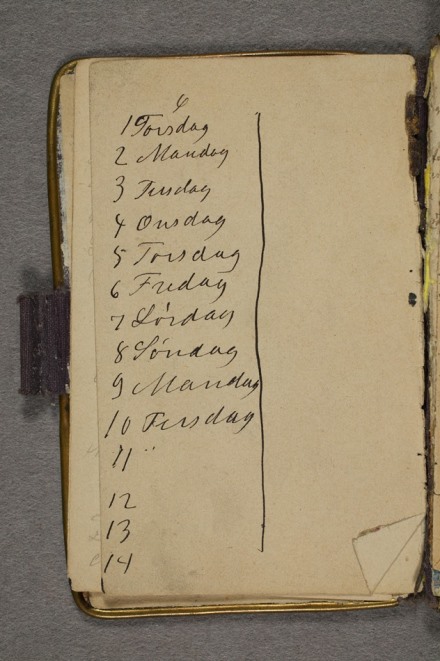 6
1 Torsdag
2 Mandag
3 Tirsdag
4 Onsdag
5 Torsdag
6 Fredag
7 Lördag
8 Söndag
9 Mandag
10 Tirsdag
11 "
12
13
14